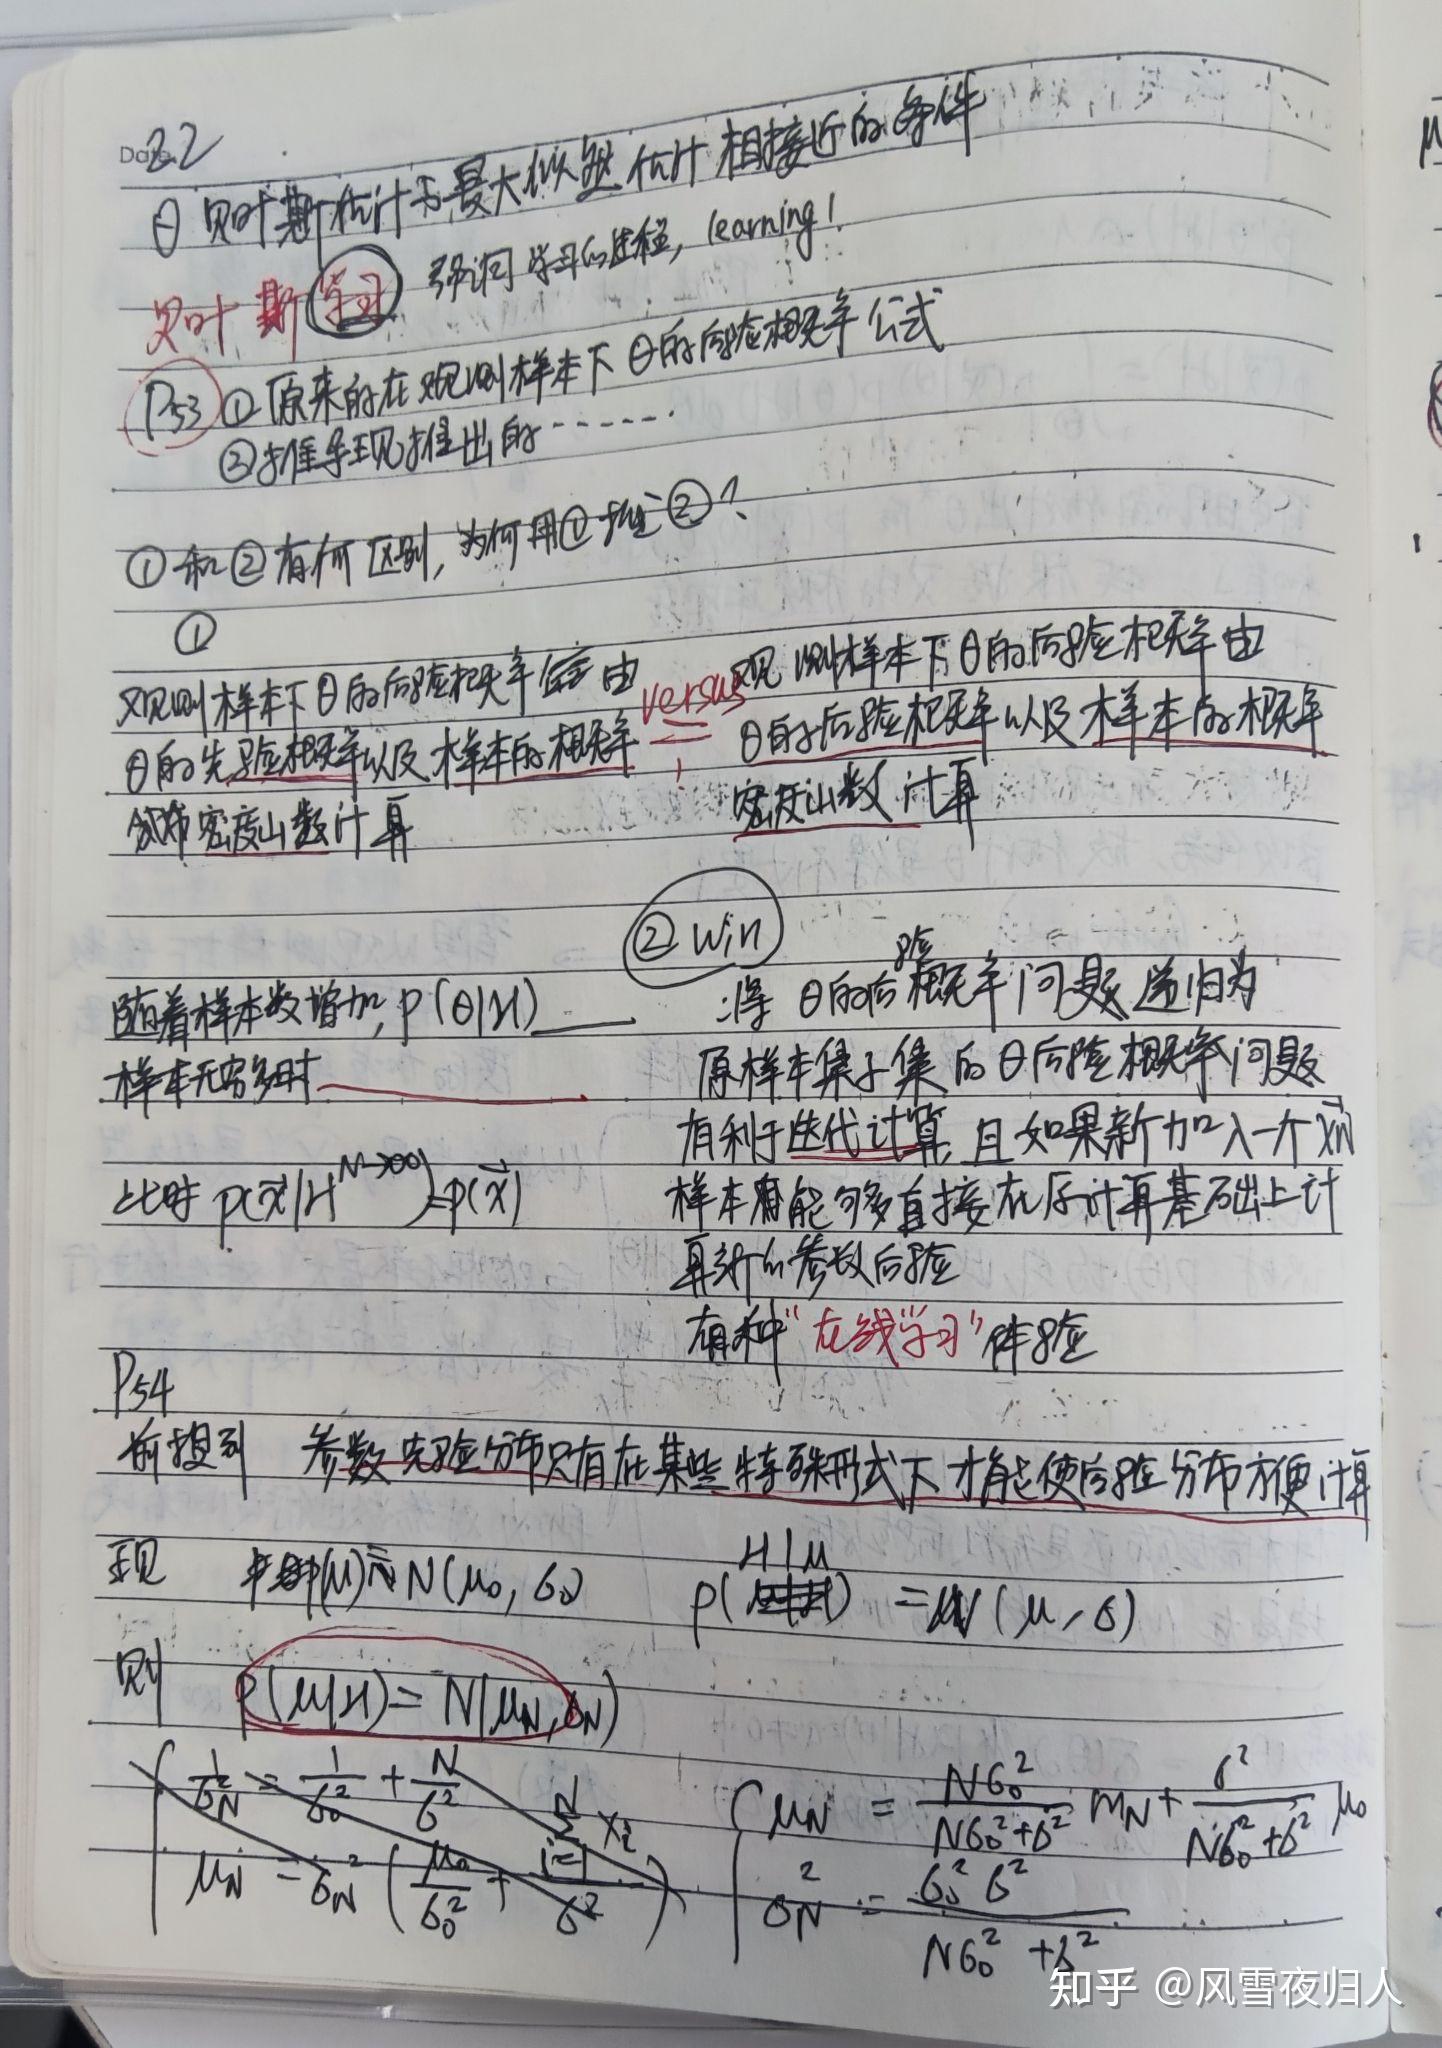 Date 2.2
θ 贝叶斯估计与最大似然估计相接近的条件
贝叶斯学习 强调学习的过程, learning!
P53 ① 原来的在观测样本下 θ的后验概率公式
② 推导现推出的······
① 和 ② 有何区别, 为何用①推②?
①
观测样本下θ的后验概率 由
θ的先验概率以及样本的概率
分布密度函数计算
versus
观测样本下θ的后验概率由
θ的后验概率以及样本的概率
密度函数计算
② Win
随着样本数增加, p(θ|H)
样本无穷多时
此时 p(x⃗|H^{N→∞})=p(x⃗)
将 θ的后验概率问题递归为
原样本集子集的θ后验概率问题
有利于迭代计算, 且如果新加入一个x⃗N
样本 能够多直接在原计算基础上计
算新的参数后验
有种“在线学习”体验
P54
前提到 参数先验分布只有在某些特殊形式下才能使后验分布方便计算
现 p(μ)=N(μ₀, σ₀) p(H|μ) = N(μ, σ)
则 p(μ|H) = N(μN, σN)
1/σN² = 1/σ₀² + N/σ²
μN = σN² (μ₀/σ₀² + Σ_{i=1}^{N} xi / σ²)
μN = Nσ₀²/(Nσ₀²+σ²) mN + σ²/(Nσ₀²+σ²) μ₀
σN² = σ₀²σ²/(Nσ₀²+σ²)
知乎 @风雪夜归人